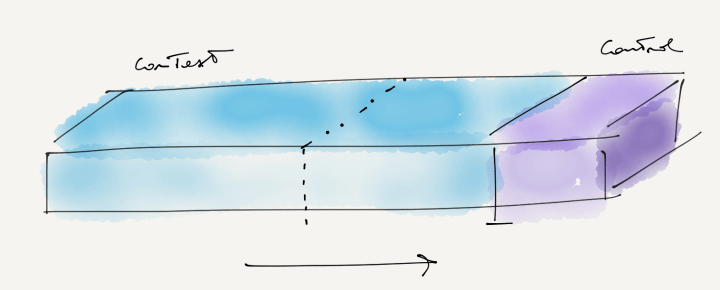 ConTest
Control